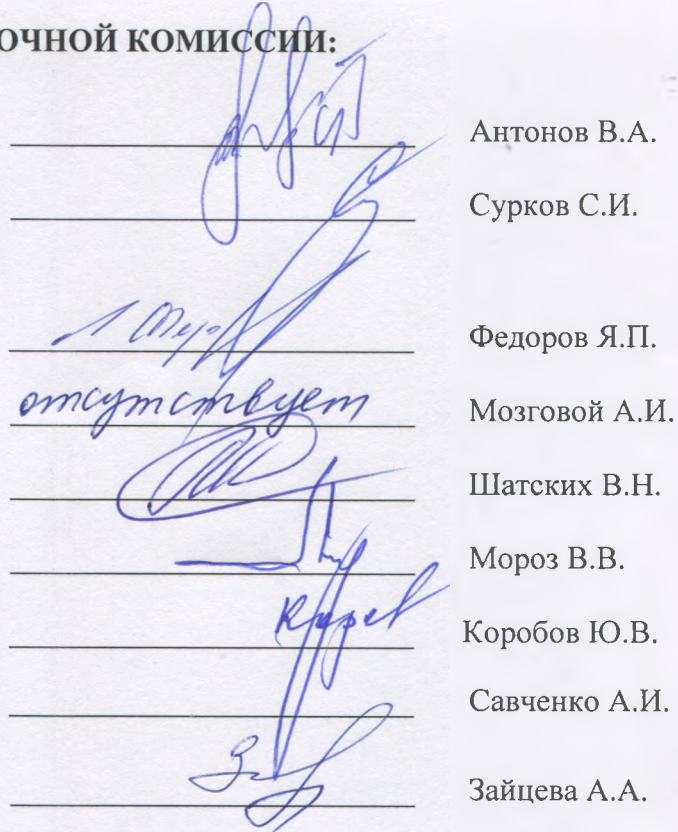 ОЧНОЙ КОМИССИИ:
Антонов В.А.
Сурков С.И.
Федоров Я.П.
отсутствует Мозговой А.И.
Шатских В.Н.
Мороз В.В.
Коробов Ю.В.
Савченко А.И.
Зайцева А.А.